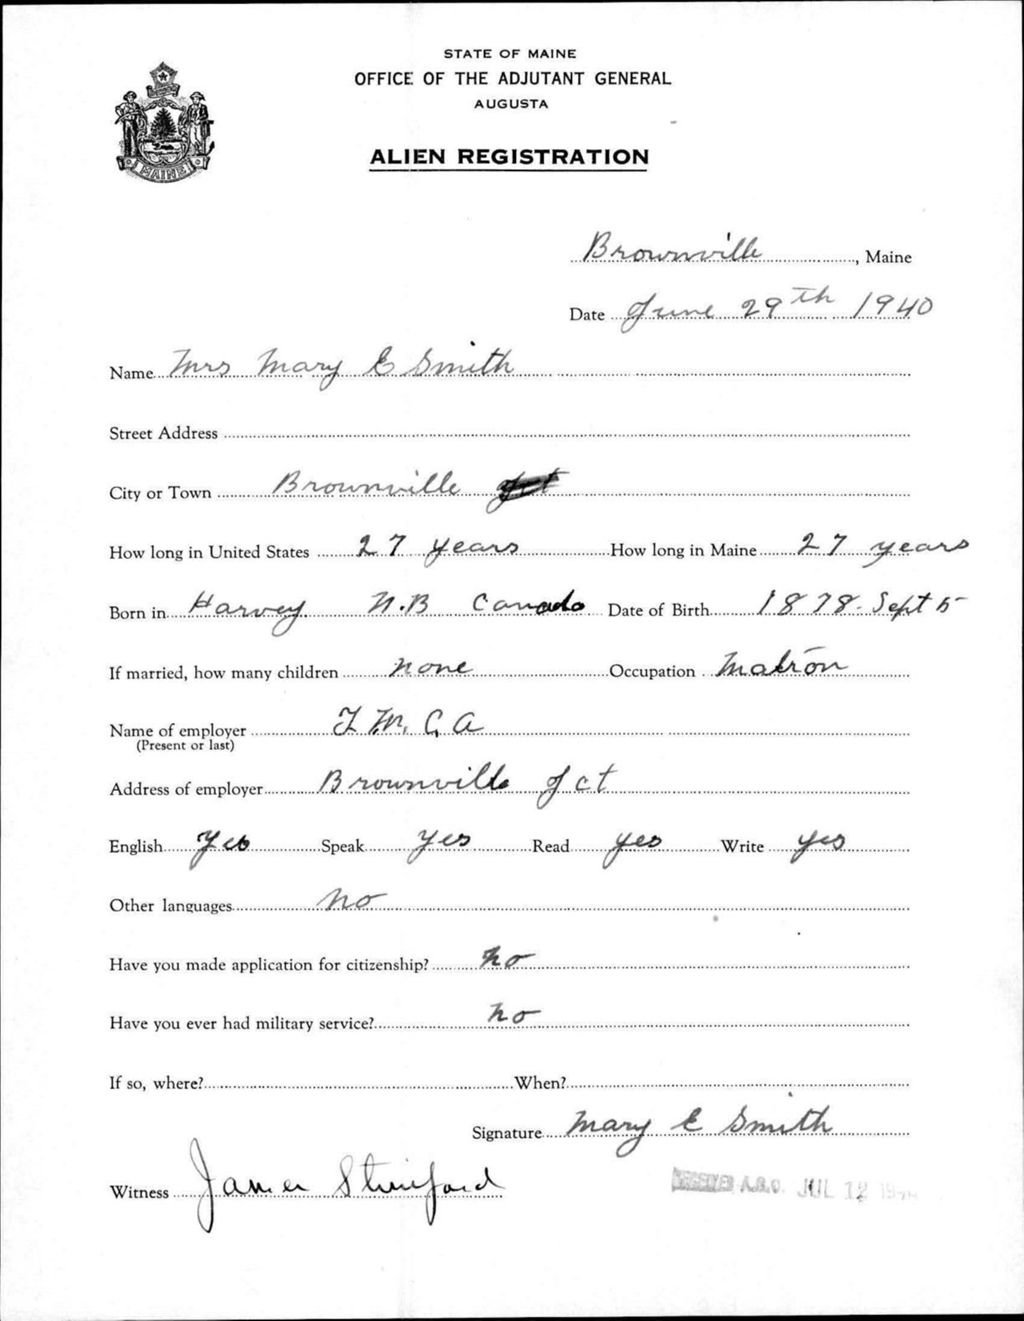 STATE OF MAINE
OFFICE OF THE ADJUTANT GENERAL
AUGUSTA
ALIEN REGISTRATION
MAINE
Brownville, Maine
Date June 29th 1940
Name Mrs Mary E Smith
Street Address
City or Town Brownville
How long in United States 27 years How long in Maine 27 years
Born in Harvey N.B Canada Date of Birth 1878. Sept 5
If married, how many children none Occupation Matron
Name of employer Y. M. C. A
(Present or last)
Address of employer Brownville Jct
English Yes Speak Yes Read yes Write yes
Other languages No
Have you made application for citizenship? no
Have you ever had military service? no
If so, where? When?
Signature Mary E Smith
Witness James
RECEIVED A.G.O. JUL 12